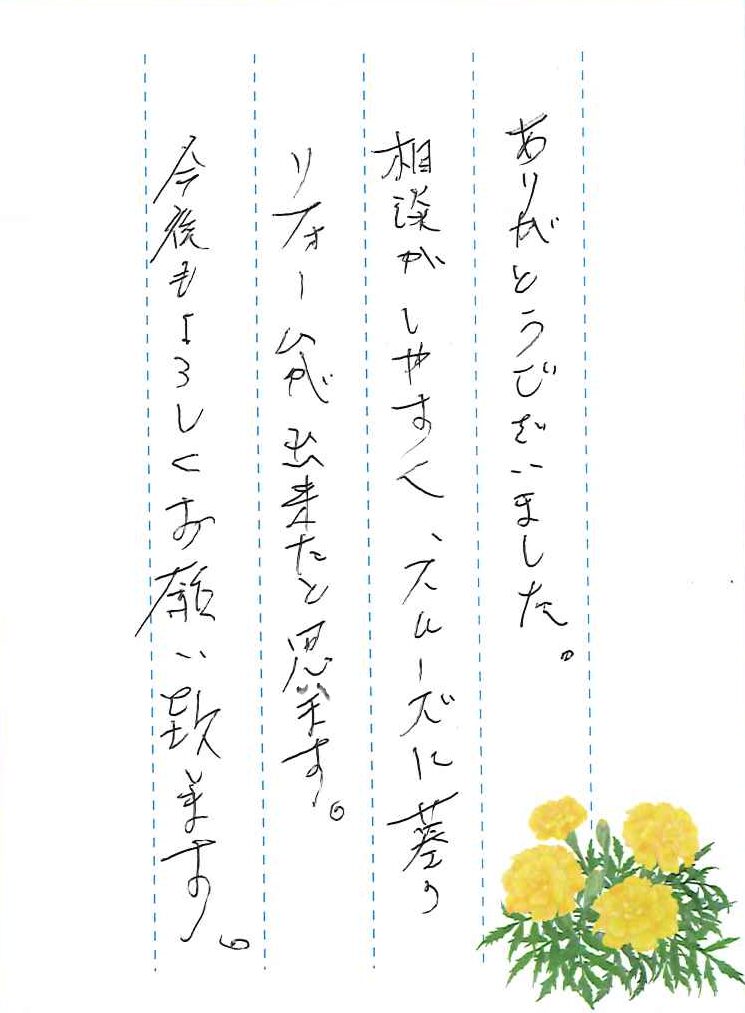 ありがとうございました。
相談がしやすく、スムーズに墓の
リフォームが出来たと思います。
今後もよろしくお願い致ます。